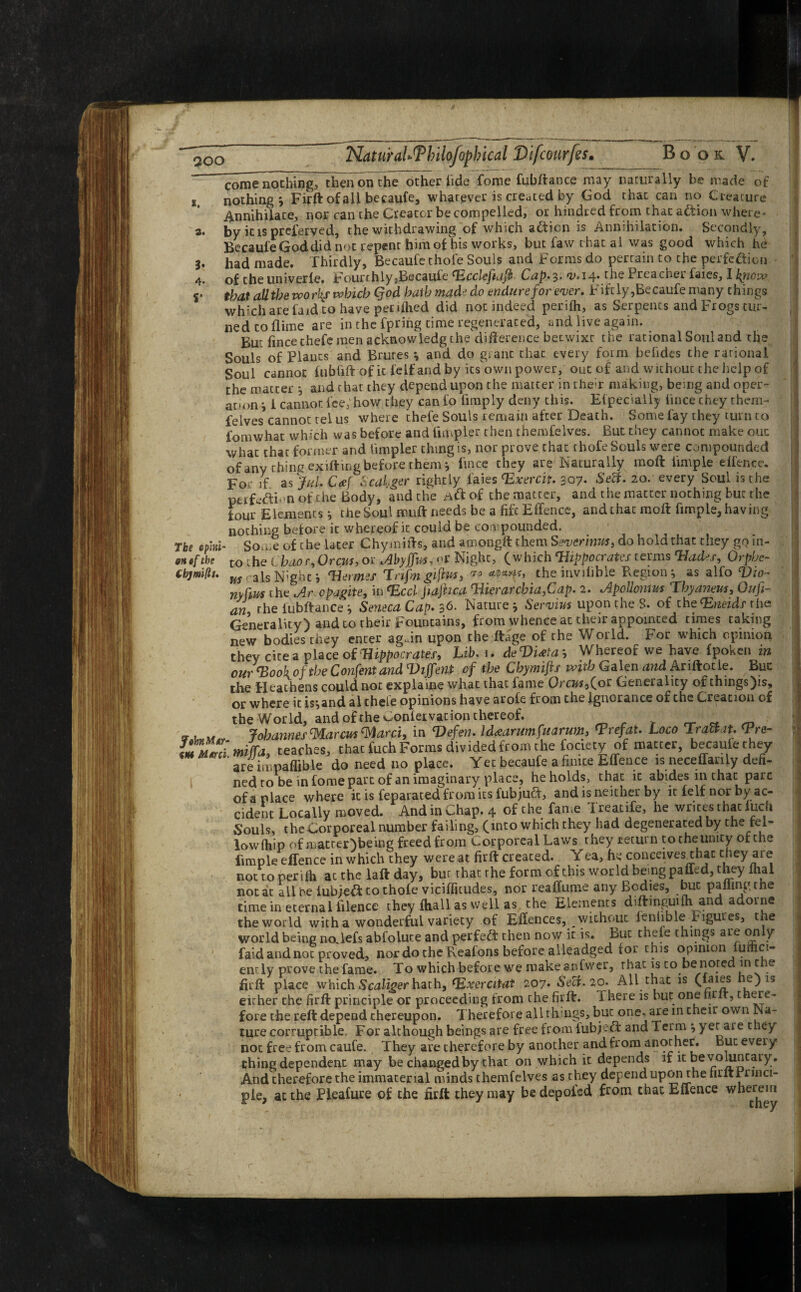 200 Natural-Philosophical Discourses. BOOK V.
come nothing, then on the other side some substance may naturally be made of
1. nothing; First of all because, whatever is created by God that can no Creature
Annihilate, nor can the Creator be compelled, or hindred from that action where-
2. by it is preserved, the withdrawing of which action is Annihilation. Secondly,
Because God did not repent him of his works, but saw that al was good which he
3. had made. Thirdly, Because those Souls and Forms do pertain to the perfection
4. of the universe. Fourthly, Because Ecclesiast. Cap. 3. v. 14. the Preacher saies, I know
5. that all the works which God hath made do endure for ever. Fiftly, Because many things
which are said to have perished did not indeed perish, as Serpents and Frogs tur-
ned to slime are in the spring time regenerated, and live again.
But since these men acknowledg the difference betwixt the rational Soul and the
Souls of Plants and Brutes; and do grant that every form besides the rational
Soul cannot subsist of it self and by its own power, out of and without the help of
the matter; and that they depend upon the matter in their making, being and oper-
ation; I cannot see, how they can so simply deny this. Especially since they them-
selves cannot tel us where these Souls remain after Death. Some say they turn to
somwhat which was before and simpler then themselves. But they cannot make out
what that former and simpler thing is, nor prove that those Souls were compounded
of any thing existing before them; since they are Naturally most simple essence.
For if as Jul. Cæs. Scaliger rightly saies Exercit. 307. Sect. 20. every Soul is the
perfection of the Body, and the Act of the matter, and the matter nothing but the
four Elements; the Soul must needs be a fift Essence, and that most simple, having
nothing before it whereof it could be compounded.
The opini- Some of the later Chymists, and amongst them Severinus, do hold that they go in-
on of the to the Chaos, Orcus, or Abyssus, or Night, (which Hippocrates terms Hades, Orphe-
Chymists. us cals Night; Hermes Trismegistus, the invisible Region; as also Dio-
nysius the Areopagite, in Eccl. siastica Hierarchia, Cap. 2. Apollonius Thyaneus, Ousi-
an, the substance; Seneca Cap. 36. Nature; Servius upon the 8. of the Eneids the
Generality) and to their Fountains, from whence at their appointed times taking
new bodies they enter again upon the stage of the World. For which opinion
they cite a place of Hippocrates, Lib. 1. de Diæta; Whereof we have spoken in
our Book of the Consent and Dissent of the Chymists with Galen and Aristotle. But
the Heathens could not explaine what that same Orcus, (or Generality of things) is,
or where it is; and al these opinions have arose from the Ignorance of the Creation of
the World, and of the Conservation thereof.
John Mar- Johannes Marcus Marci, in Defen. Idæarum suarum, Præfat. Loco Tractat. Præ-
cus Marci. missa, teaches, that such Forms divided from the society of matter, because they
are impassible do need no place. Yet because a finite Essence is necessarily defi-
ned to be in some part of an imaginary place, he holds, that it abides in that part
of a place where it is separated from its subject, and is neither by it self nor by ac-
cident Locally moved. And in Chap. 4 of the same Treatise, he writes that such
Souls, the Corporeal number failing, (into which they had degenerated by the fel-
lowship of matter) being freed from Corporeal Laws they return to the unity of the
simple essence in which they were at first created. Yea, he conceives that they are
not to perish at the last day, but that the form of this world being passed, they shal
not at all be subject to those vicissitudes, nor reassume any Bodies, but passing the
time in eternal silence they shall as well as the Elements distinguish and adorne
the world with a wonderful variety of Essences, without sensible Figures, the
world being no less absolute and perfect then now it is. But these things are only
said and not proved, nor do the Reasons before alleadged for this opinion suffici-
ently prove the same. To which before we make answer, that is to be noted in the
first place which Scaliger hath, Exercitat 207. Sect. 20. All that is (saies he) is
either the first principle or proceeding from the first. There is but one first, there-
fore the rest depend thereupon. Therefore all things, but one, are in their own Na-
ture corruptible. For although beings are free from subject and Term; yet are they
not free from cause. They are therefore by another and from another. But every
thing dependent may be changed by that on which it depends if it be voluntary.
And therefore the immaterial minds themselves as they depend upon the first Princi-
ple, at the Pleasure of the first they may be deposed from that Essence wherein
they